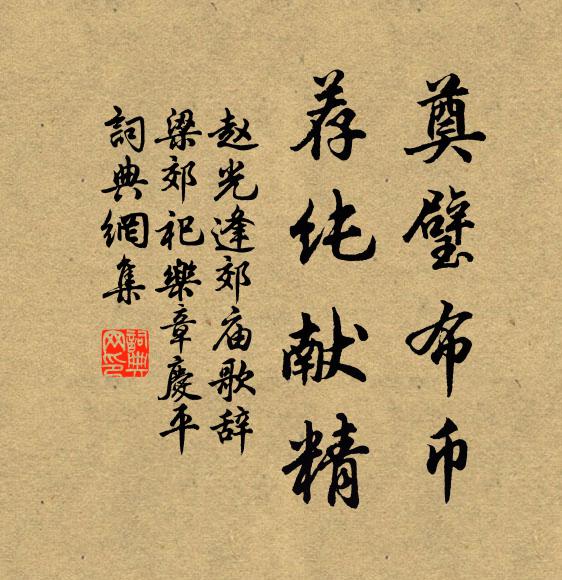 奠璧布币
荐纯献精
赵光逢郊庙歌辞
梁郊祀樂章慶平
詞典網集
詞典网印